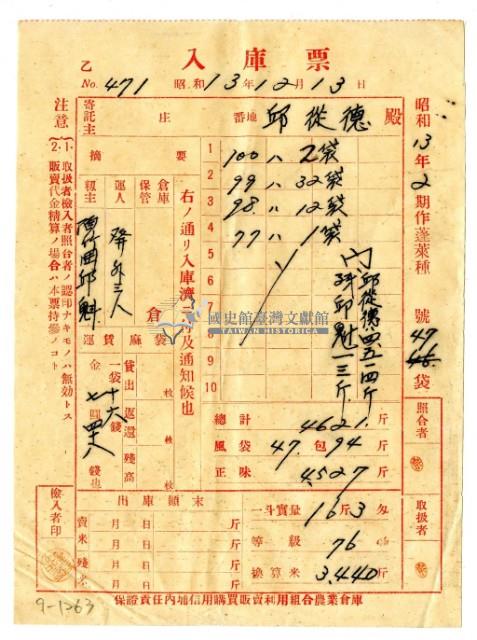 入庫票
乙
No. 471 昭和13年12月13日
寄託主 庄 番地 邱從德 殿
昭和13年2期作蓬萊種 號 47 46 袋
摘要
1 100 〃 2袋
2 99 〃 32袋
3 98 〃 12袋
4 77 〃 1袋
5
6
7
8
9
10
內 邱從德 四五一四斤
邱魁 一三斤
右ノ通リ入庫濟ニ付及通知候也
倉庫保管
運人
籾主
倉
國史館臺灣文獻館
TAIWAN HISTORICA
運賃 麻袋
貸出 枚
返還 枚
殘高 枚
一袋 錢
金 圓 錢也
總計 4621 斤
風袋 47包 94 斤
正味 4527 斤
一斗實量 16斤3匁
等級 76 %
換算米 3,440 斤
出庫顛末
月 日 斤
月 日 斤
月 日 斤
月 日 斤
照合者
取扱者
檢入者印
注意
1. 取扱者檢入者照合者ノ認印ナキモノハ無効トス
2. 販賣代金精算ノ場合ハ本票持參ノコト
保證責任內埔信用購買販賣利用組合農業倉庫
9-1263